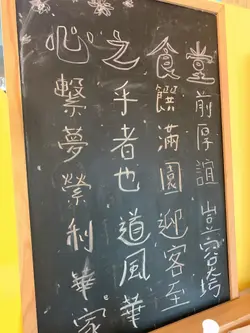 堂前厚誼豈容垮
食饌滿園迎客至
之乎者也道風華
心繫夢縈利華家